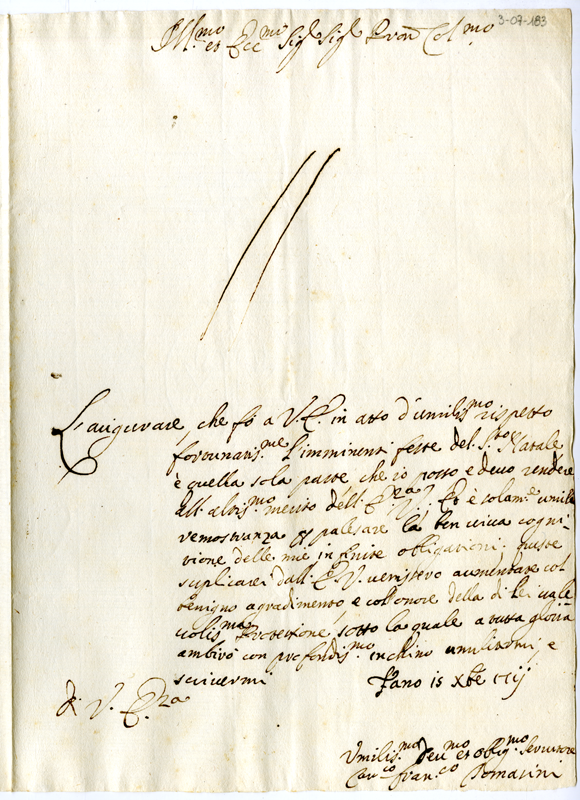 3-07-183
Ill.mo et Ecc.mo Sig.r Sig.r Pron Col.mo
L'augurare, che fò a V.E. in atto d'umilis.mo rispetto
fortunatis.me l'imminenti feste del S.to Natale
è quella sola parte che io posso e devo rendere
all'altis.mo merito dell'E.za V., Et è solam.e umile
remostranza p palesare la ben viva cogni-
tione delle mie infinite obligationi; queste
suplicarei dall'E.V. venissero aumentate col
benigno agradimento, e coll'onore della di lei vale-
volis.ma Protetione, sotto la quale a tutta gloria
ambirò con profondis.mo inchino umiliarmi, e
scrivermi
Fano 15 Xbre
di V. E.za
Umilis.mo Dev.mo et oblig.mo Servitore
Fran.co